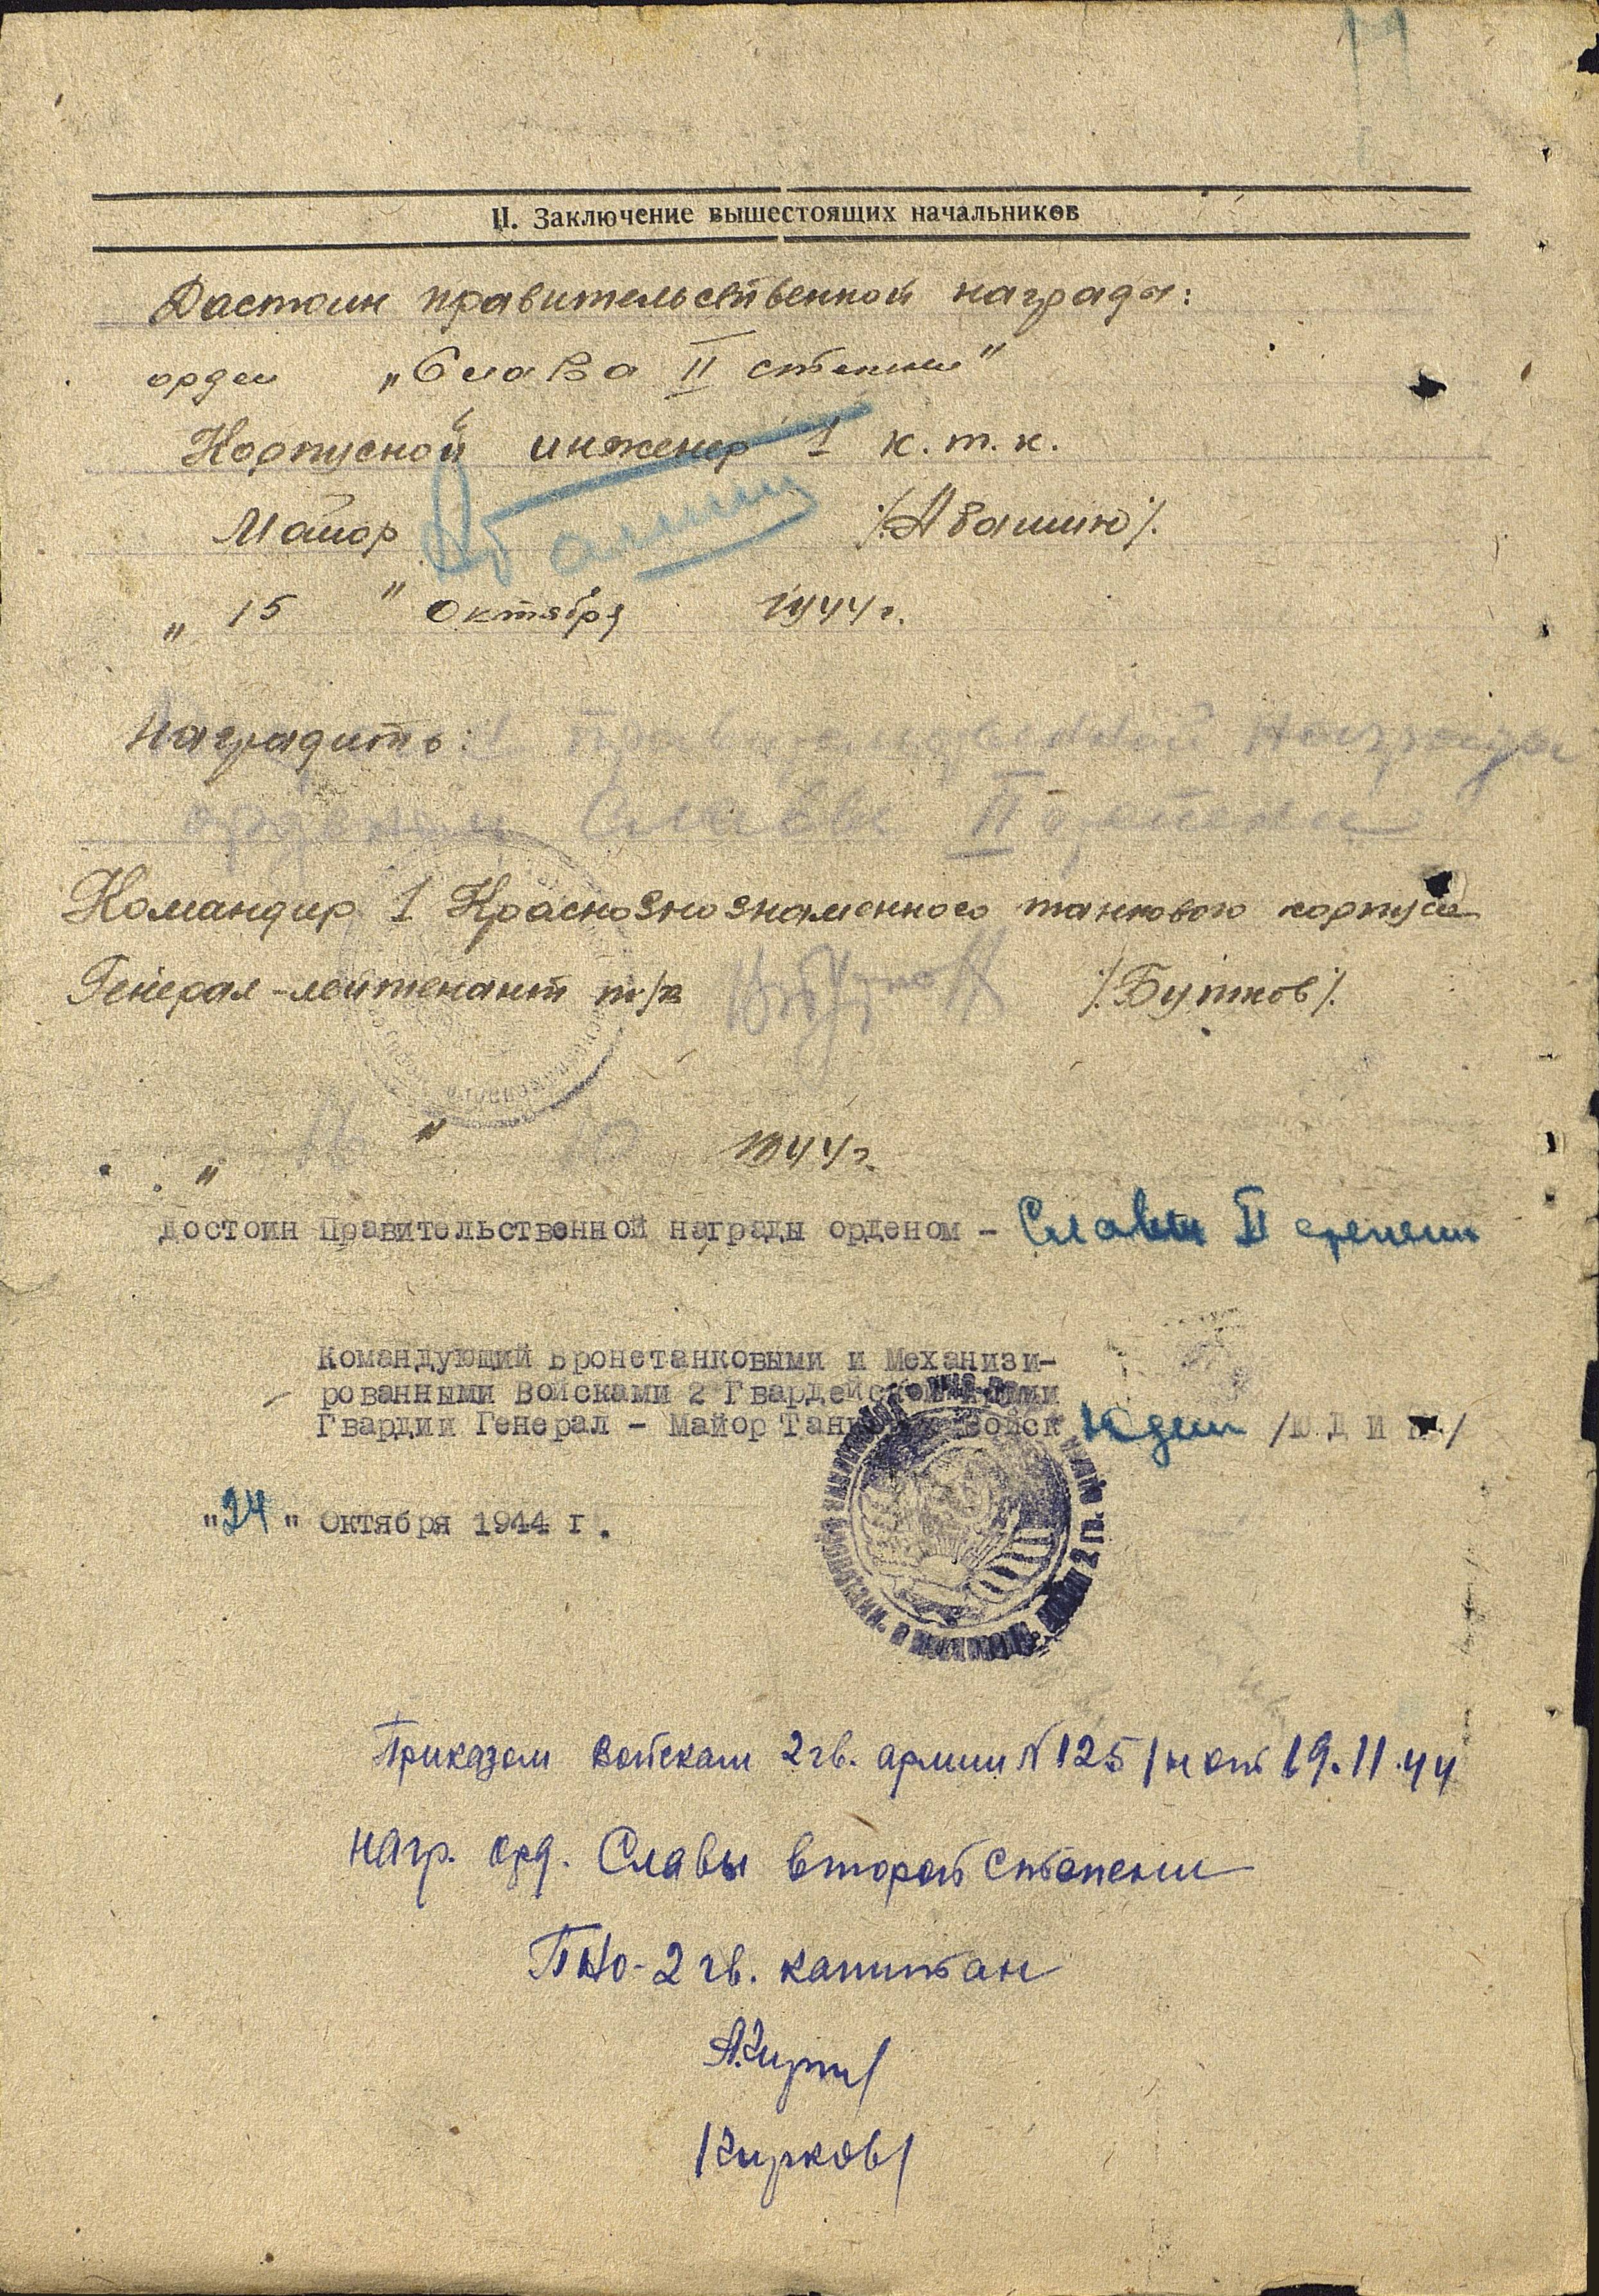 II. Заключение вышестоящих начальников
Дастоин правительственной награды:
орден „Слава II степени"
Корпусной инженер 1 к.т.к.
Майор /Абашин/.
„15" Октября 1944г.
Наградить: правительственной награды
орденом Славы II степени
Командир 1 Краснознознаменного танкового корпуса
Генерал-лейтенант т/в /Бутков/.
„16" 10 1944г.
Достоин Правительственной награды орденом - Славы II степени
Командующий Бронетанковыми и Механизи-
рованными Войсками 2 Гвардейской Армии
Гвардии Генерал - Майор Танковых Войск Юдин /Ю Д И Н/
"24" Октября 1944 г.
Приказом войскам 2 гв. армии №125/н от 19.11.44
нагр. орд. Славы второй степени
ПНО-2 гв. капитан
/Чирков/